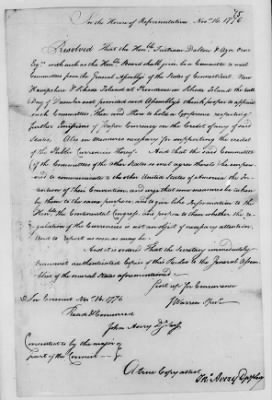 In the House of Representatives Nov. 16. 1776
Resolved That the Honble Tristram Dalton & Azor Orne
Esqrs with such as the Honble Board shall join be a Committee to meet
Committees from the General Assembly of the States of Connecticut New
Hampshire & Rhode Island at Providence in Rhode Island the last
Day of December next provided said Assemblys think proper to appoint
such Committees Then and there to hold a Conference respecting
further Emission of Paper Currency on the Credit of any of said
States. Also on measures necessary for supporting the credit
of the Publick Currencies thereof. And that the said Committee
if the Committees of the other States so met agree thereto be impow-
ered to communicate to the other United States of America the In-
tentions of their Convention, and urge that some measures be taken
by them to the same purpose and to give like Representation to the
Honble the Continental Congress and question to them whether the re-
gulation of the Currencies is not an object of necessary attention.
And to report as soon as may be.
And it is ordered that the Secretary immediately
transmit authenticated Copies of this Resolve to the General Assem-
blies of the several States aforementioned
Sent up for Concurrence
J Warren Spkr.
In Council Nov. 16. 1776
Read & Concurred
John Avery Dpy Secy
Consented to by the major
part of the Council
A true Copy attest
Jno Avery Dpy Secy